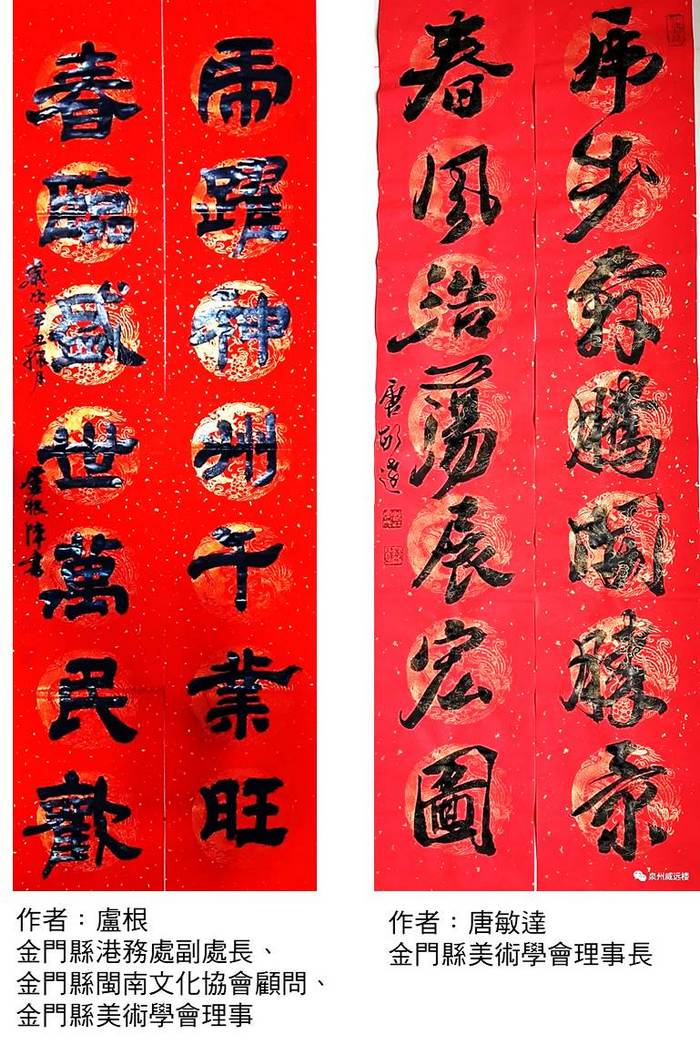 虎躍神州千業旺
春臨盛世萬民歡
歲次辛丑
盧根
虎步奔騰開勝景
春風浩蕩展宏圖
唐敏達
泉州威远楼
作者：盧根
金門縣港務處副處長、
金門縣閩南文化協會顧問、
金門縣美術學會理事
作者：唐敏達
金門縣美術學會理事長